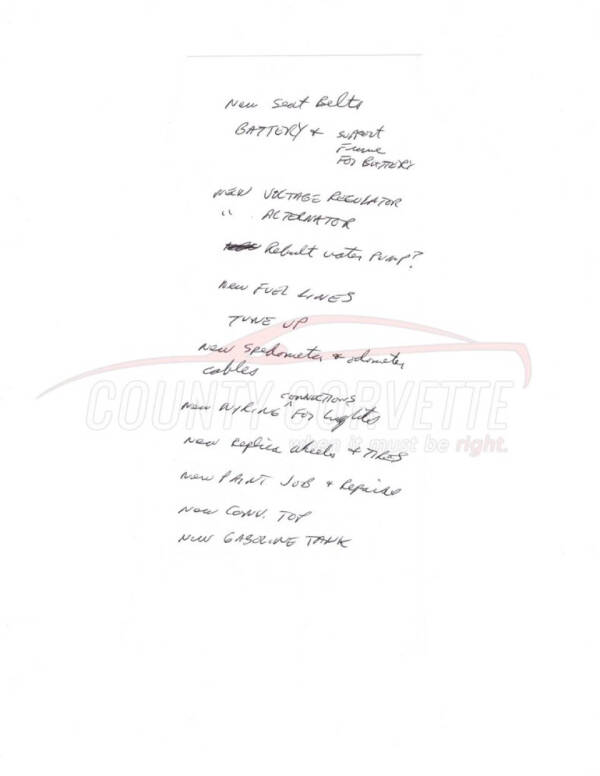 New Seat Belts
BATTERY & SUPPORT
Frame
FOR BATTERY
New VOLTAGE REGULATOR
" ALTERNATOR
Rebuilt water PUMP?
New FUEL LINES
TUNE UP
New Spedometer & odometer
cables
CONNECTIONS
New WIRING ^ FOR Lights
New Replica wheels & TIRES
New PAINT JOB & Repairs
New CONV. TOP
New GASOLINE TANK
COUNTY CORVETTE
when it must be right.